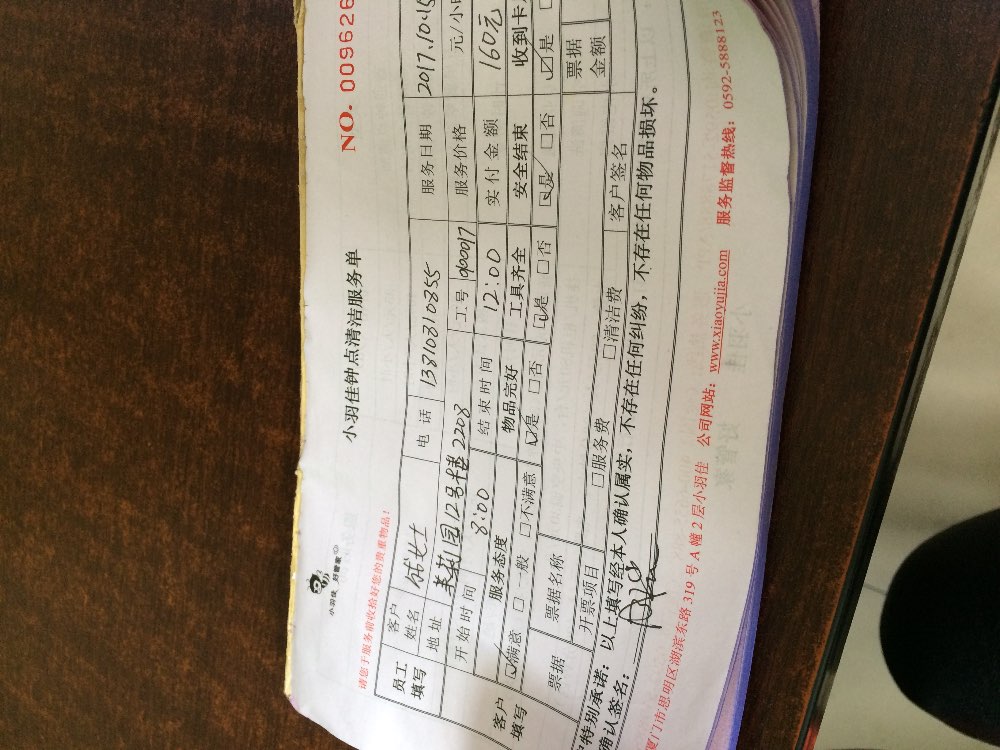 NO. 009626
小羽佳 好管家
小羽佳钟点清洁服务单
请您于服务前收拾好您的贵重物品!
员工填写 客户姓名 女士 电话 13810310855 服务日期 2017.10.15
地址 美萁园12号楼2208 工号 服务价格 元/小时
开始时间 8:00 结束时间 12:00 实付金额 160元
客户填写 服务态度 物品完好 工具齐全 安全结束 收到卡
☑满意 □一般 □不满意 ☑是 □否 ☑是 □否 ☑是 □否 ☑是
票据 票据名称 票据金额
开票项目 □服务费 □清洁费 客户签名
特别承诺:以上填写经本人确认属实,不存在任何纠纷,不存在任何物品损坏。
确认签名:
厦门市思明区湖滨东路319号A幢2层小羽佳 公司网站:www.xiaoyujia.com 服务监督热线:0592-5888123